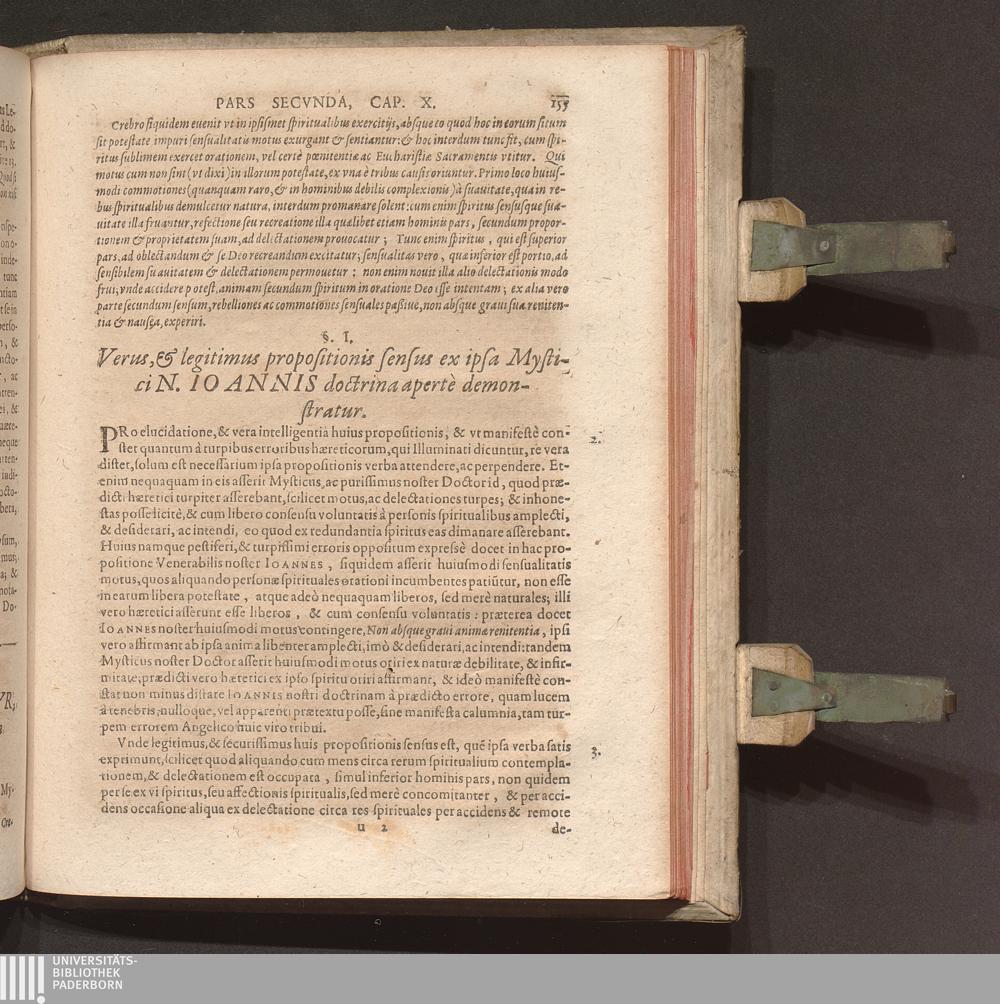 PARS SECVNDA, CAP. X. 155
Crebro siquidem euenit vt in ipsismet spiritualibus exercitijs, absque eo quod hoc in eorum situm
sit potestate impuri sensualitatis motus exurgant & sentiantur: & hoc interdum tunc fit, cum spi-
ritus sublimem exercet orationem, vel certè pœnitentiæ ac Eucharistiæ Sacramentis vtitur. Qui
motus cum non sint (vt dixi) in illorum potestate, ex vna è tribus causis oriuntur. Primo loco huius-
modi commotiones (quanquam raro, & in hominibus debilis complexionis) à suauitate, qua in re-
bus spiritualibus demulcetur natura, interdum promanare solent: cum enim spiritus sensusque sua-
uitate illa fruantur, refectione seu recreatione illa qualibet etiam hominis pars, secundum propor-
tionem & proprietatem suam, ad delectationem prouocatur; Tunc enim spiritus, qui est superior
pars, ad oblectandum & se Deo recreandum excitatur; sensualitas vero, quæ inferior est portio, ad
sensibilem suauitatem & delectationem permouetur: non enim nouit illa alio delectationis modo
frui; vnde accidere potest, animam secundum spiritum in oratione Deo esse intentam; ex alia vero
parte secundum sensum, rebelliones ac commotiones sensuales passiue, non absque graui sua reniten-
tia & nausea, experiri.
§. I.
Verus, & legitimus propositionis sensus ex ipsa Mysti-
ci N. IOANNIS doctrina apertè demon-
stratur.
PRo elucidatione, & vera intelligentia huius propositionis, & vt manifestè con- 2.
stet quantum à turpibus erroribus hæreticorum, qui Illuminati dicuntur, re vera
distet, solum est necessarium ipsa propositionis verba attendere, ac perpendere. Et-
enim nequaquam in eis asserit Mysticus, ac purissimus noster Doctor id, quod præ-
dicti hæretici turpiter asserebant, scilicet motus, ac delectationes turpes; & inhone-
stas posse licitè, & cum libero consensu voluntatis à personis spiritualibus amplecti,
& desiderari, ac intendi, eo quod ex redundantia spiritus eas dimanare asserebant.
Huius namque pestiferi, & turpissimi erroris oppositum expressè docet in hac pro-
positione Venerabilis noster IOANNES, siquidem asserit huiusmodi sensualitatis
motus, quos aliquando personæ spirituales orationi incumbentes patiũtur, non esse
in earum libera potestate, atque adeò nequaquam liberos, sed merè naturales; illi
vero hæretici asserunt esse liberos, & cum consensu voluntatis: præterea docet
IOANNES noster huiusmodi motus contingere, Non absque graui animæ renitentia, ipsi
vero affirmant ab ipsa anima libenter amplecti, imò & desiderari, ac intendi: tandem
Mysticus noster Doctor asserit huiusmodi motus oriri ex naturæ debilitate, & infir-
mitate; prædicti vero hæretici ex ipso spiritu oriri affirmant, & ideò manifestè con-
stat non minus distare IOANNIS nostri doctrinam à prædicto errore, quam lucem
à tenebris, nulloque, vel apparenti prætextu posse, sine manifesta calumnia, tam tur-
pem errorem Angelico huic viro tribui.
Vnde legitimus, & securissimus huis propositionis sensus est, quẽ ipsa verba satis 3.
exprimunt, scilicet quod aliquando cum mens circa rerum spiritualium contempla-
tionem, & delectationem est occupata, simul inferior hominis pars, non quidem
per se ex vi spiritus, seu affectionis spiritualis, sed merè concomitanter, & per acci-
dens occasione aliqua ex delectatione circa res spirituales per accidens & remote
u 2 de-
UNIVERSITÄTS-
BIBLIOTHEK
PADERBORN